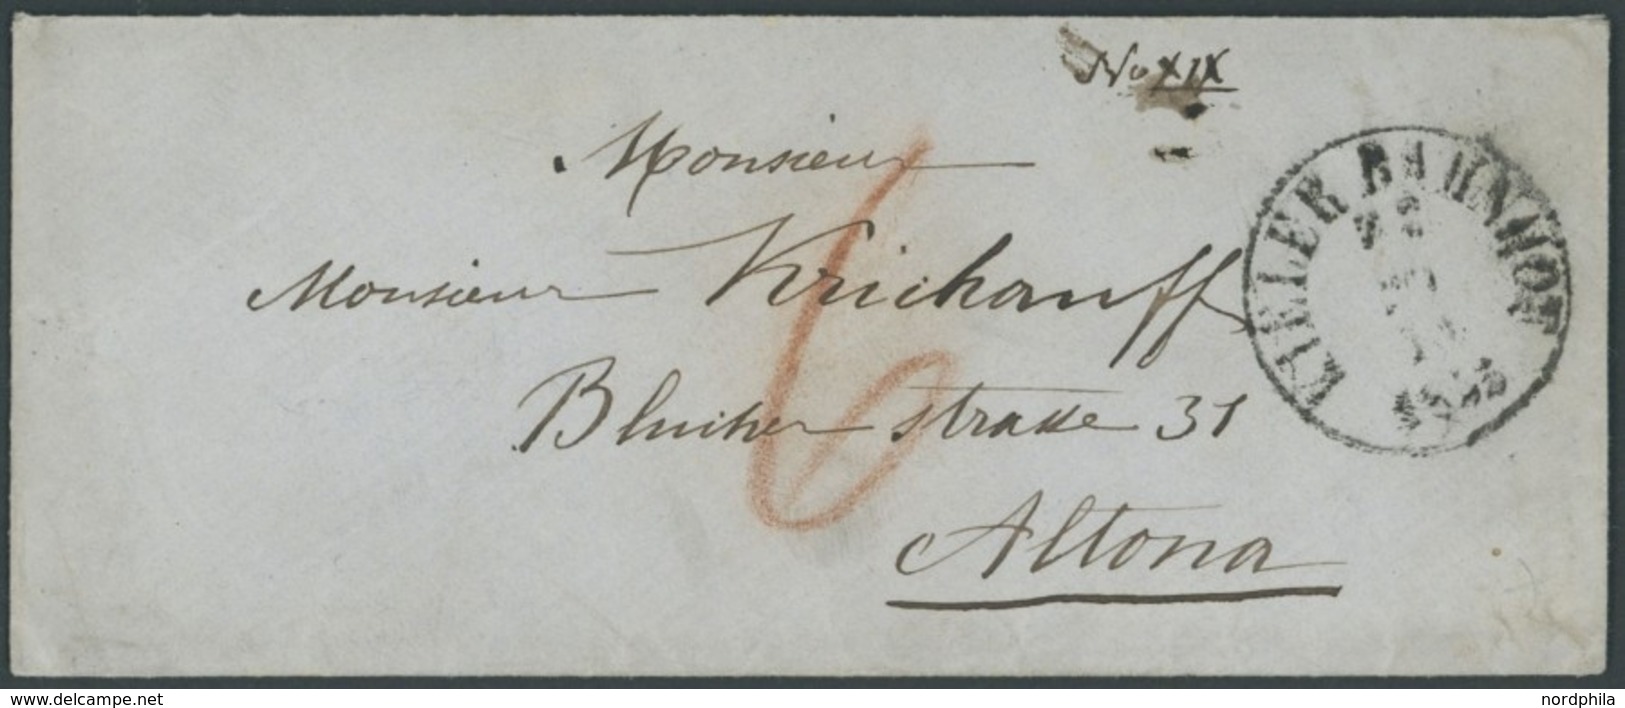 No XIX
Monsieur
Monsieur Krichauff
Blücher strasse 31
Altona
6
KIELER BAHNHOF
www.delcampe.net
nordphila